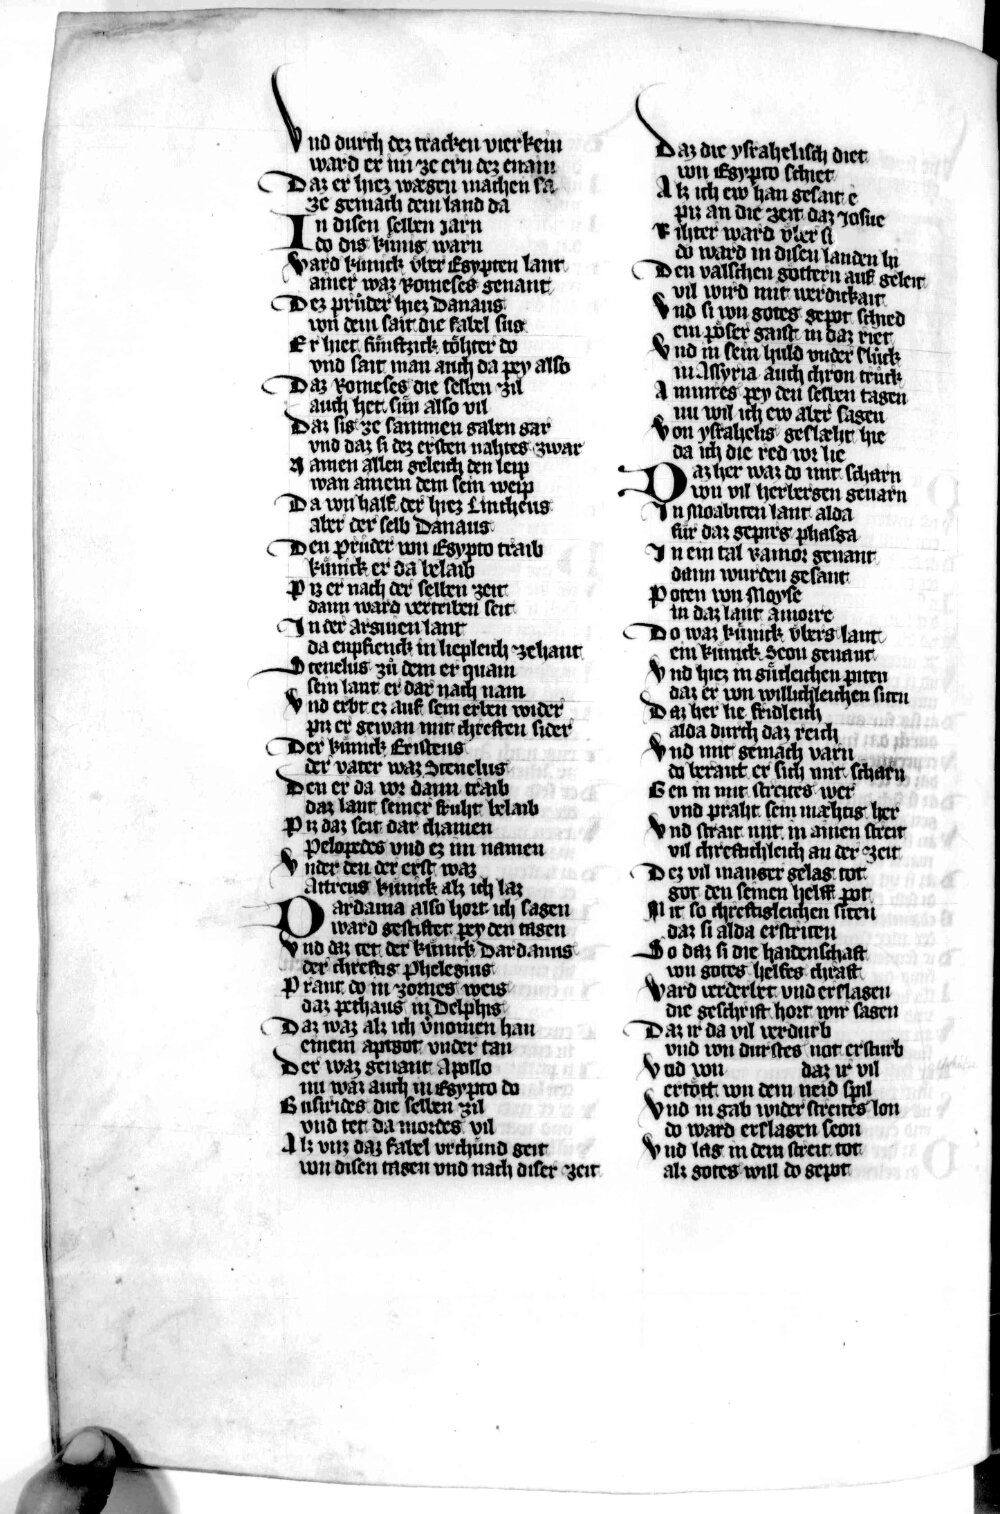 Vnd durch dez tracken vierkein
ward er im ze ern dez enain
Daz er hiez wægen machen sa
ze gemach dem land da
In disen selben iarn
do dis künig warn
Ward künick vber Egypten lant
ainer waz Romeses genant
Dez prüder hiez Danaus
von dem sait die fabel sus
Er hiet fünftzick töhter do
vnd sait man auch da pey also
Daz Romeses die selben zil
auch het sün also vil
Daz sis ze sammen gaben gar
vnd daz si dez ersten nahtes zwar
Namen allen geleich den leip
wan ainem dem sein weip
Da von half der hiez Lincheus
aber der selb Danaus
Den prüder von Egypto traib
künick er da belaib
Piz er nach der selben zeit
dann ward vertriben seit
In der Arginen lant
da enpfienck in liepleich zehant
Stenelus zü dem er quam
sein lant er dar nach nam
Vnd erbt ez auf sein erben wider
piz er gewan mit chreften sider
Der künick Eristeus
der vater waz Stenelus
Den er da vor dann traib
daz lant seiner fruht belaib
Piz daz seit dar chamen
Pelopedes vnd ez im namen
Vnder den der erst waz
Attreus künick alz ich laz
Dardania also hort ich sagen
ward gestiftet pey den tagen
Vnd daz tet der künick Dardanus
der chreftig Phelegius
Prant do in zornes weis
daz pethaus in Delphis
Daz waz alz ich vernomen han
einem aptgot vnder tan
Der waz genant Apollo
nu waz auch in Egypto do
Busirides die selben zil
vnd tet da mordes vil
Alz vnz daz fabel vrchünd geit
von disen tagen vnd nach diser zeit
Daz die ysrahelisch diet
von Egypto schiet
Alz ich ew han gesait e
piz an die zeit daz Josue
Rihter ward vber si
do ward in disen landen bi
Den valschen göttern auf geleit
vil wird mit werdickait
Vnd si von gotes gepot schied
ein pöser gaist in daz riet
Vnd in sein huld vnder slück
in Assyria auch chron truck
Amintes pey den selben tagen
nu wil ich ew aber sagen
Von ysrahelis geslæht hie
da ich die red vor lie
Daz her waz do mit scharn
von vil herbergen gevarn
In Moabiten lant alda
für daz gepirg phasga
In ein tal Ramor genant
dann wurden gesant
Poten von Moyse
in daz lant Amorre
Do waz künick vbers lant
ein künick Seon genant
Vnd hiez in gütleichen piten
daz er von willichleichen siten
Daz her lie fridleich
alda durch daz reich
Vnd mit gemach varn
do beraut er sich mit scharn
Gen in mit streites wer
vnd praht sein mæhtig her
Vnd strait mit in ainen streit
vil chreftichleich an der zeit
Dez vil manger gelag tot
got den seinen helff pot
Mit so chreftigleichen siten
daz si alda erstriten
So daz si die haidenschaft
von gotes helfes chraft
Ward verderbet vnd erslagen
die geschrift hort wir sagen
Daz ir da vil verdurb
vnd von durstes not ersturb
Vnd von daz ir vil
ertött von dem neid spil
Vnd in gab wider streites lon
do ward erslagen Seon
Vnd lag in dem streit tot
alz gotes will do gepot